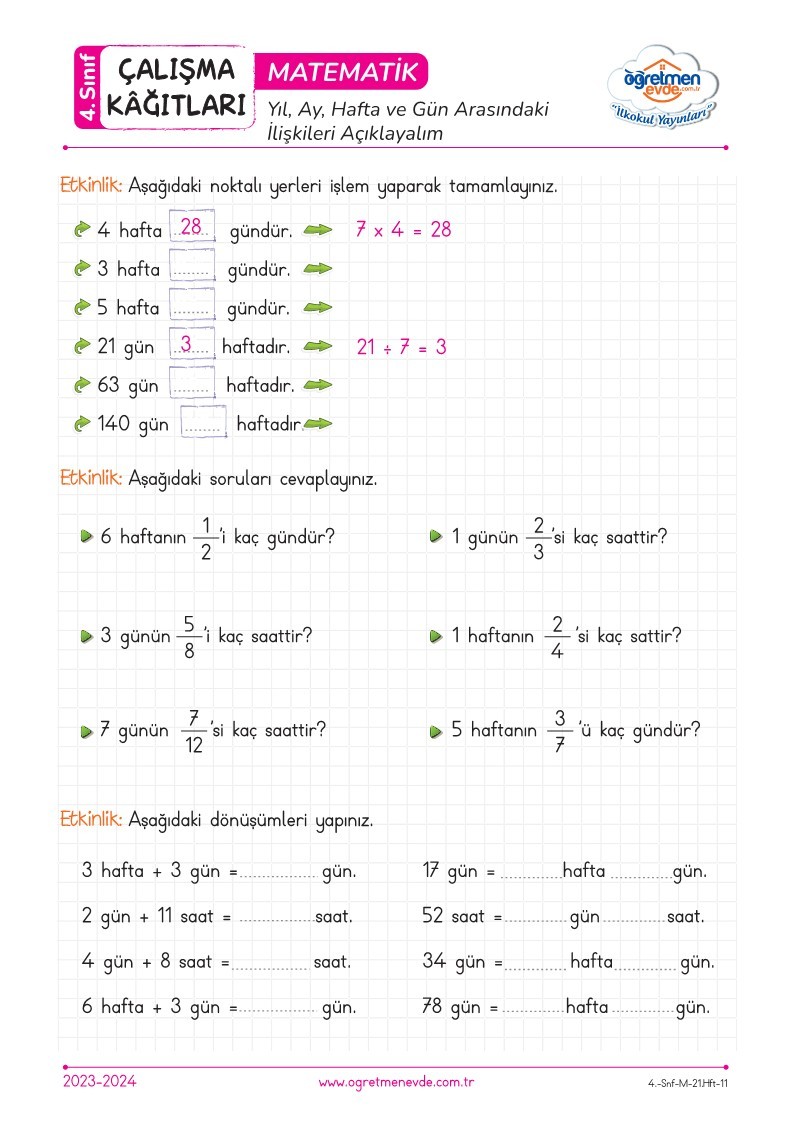 4. Sınıf
ÇALIŞMA
KÂĞITLARI
MATEMATİK
Yıl, Ay, Hafta ve Gün Arasındaki
İlişkileri Açıklayalım
öğretmen
evde.com.tr
"İlkokul Yayınları"
Etkinlik: Aşağıdaki noktalı yerleri işlem yaparak tamamlayınız.
4 hafta 28 gündür. 7 x 4 = 28
3 hafta ........ gündür.
5 hafta ........ gündür.
21 gün 3 haftadır. 21 ÷ 7 = 3
63 gün ........ haftadır.
140 gün ........ haftadır.
Etkinlik: Aşağıdaki soruları cevaplayınız.
6 haftanın 1/2 'i kaç gündür? 1 günün 2/3 'si kaç saattir?
3 günün 5/8 'i kaç saattir? 1 haftanın 2/4 'si kaç sattir?
7 günün 7/12 'si kaç saattir? 5 haftanın 3/7 'ü kaç gündür?
Etkinlik: Aşağıdaki dönüşümleri yapınız.
3 hafta + 3 gün =.................. gün. 17 gün = ...............hafta ...............gün.
2 gün + 11 saat = ..................saat. 52 saat =............... gün...............saat.
4 gün + 8 saat =.................. saat. 34 gün =............... hafta............... gün.
6 hafta + 3 gün =.................. gün. 78 gün = ...............hafta ...............gün.
2023-2024 www.ogretmenevde.com.tr 4.-Snf-M-21.Hft-11